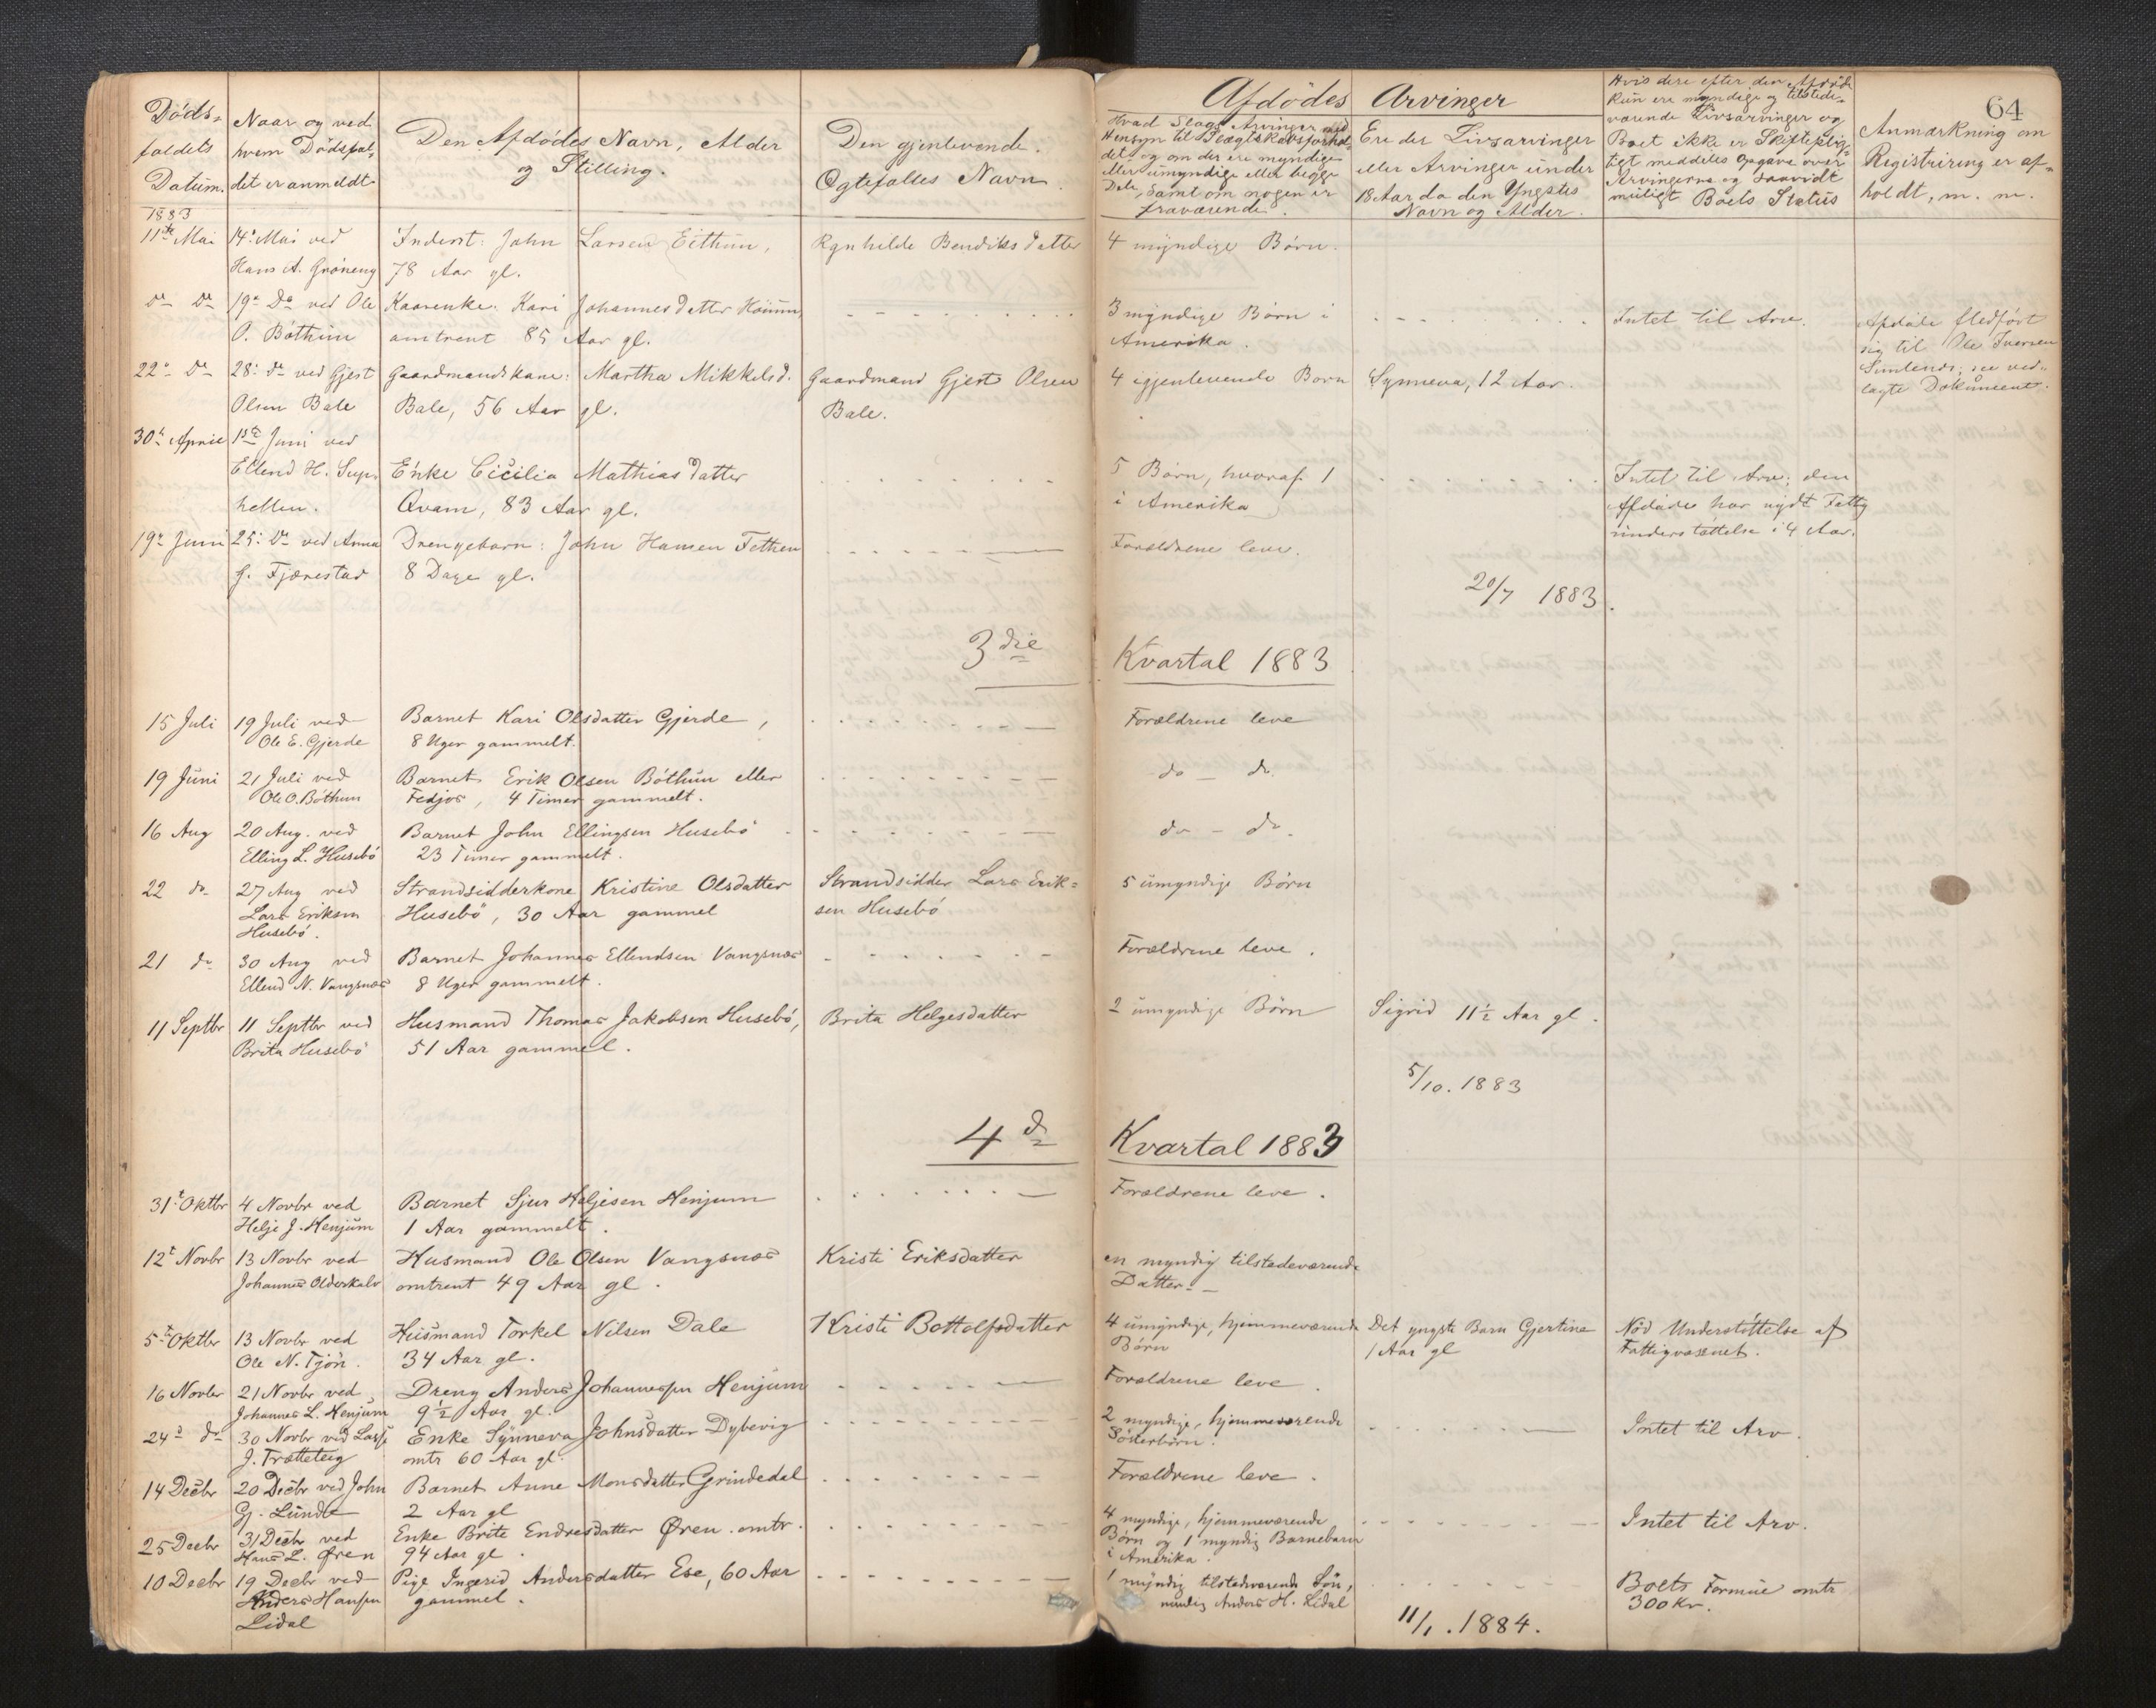 64
Döds-
faldets
Datum.
Naar og ved
hvem Dödsfal-
det er anmeldt
Den Afdödes Navn, Alder
og Stilling.
Den gjenlevende
Ögtefælles Navn
Afdödes Arvinger
Hvad Slags Arvinger med
Hensyn til Slægtskabsforhol-
det, og om der ere myndige
eller umyndige eller begge
Dele, samt om nogen er
fraværende.
Ere der Livsarvinger
eller Arvinger under
18 Aar da den Yngstes
Navn og Alder.
Hvis dere efter den Afdöde
kun ere myndige og tilstede-
værende Livsarvinger og
Boet ikke er Skiftepligt-
tigt meddeles Opgave over
Arvingerne og saavidt
muligt Boets Status
Anmærkning om
Registrering er af-
holdt, m. m.
1883
11te Mai
14de Mai ved
Hans A. Gröneng
Inderst: John Larsen Eithun,
78 Aar gl.
Rgnhilde Bendiksdatter
4 myndige Börn.
do do
19de do ved Ole
O. Böthun
Kaarenke: Kari Johannesdatter
omtrent 85 Aar gl.
3 myndige Börn i
Amerika.
Intet til Arv.
Afdöde fledfört
sig til Ole Iversen
see ved-
lagte Dokument.
22de do
28de do ved Gjert
Olsen Bale
Gaardmandskone: Martha Mikkelsd.
Bale, 56 Aar gl.
Gaardmand Gjert Olsen
Bale.
4 igjenlevende Born
Synneva, 12 Aar.
30te April
1ste Juni ved
Ellend H. Sup-
hellen.
Enke Cicilia Mathiasdatter
Qvam, 83 Aar gl.
5 Börn, hvoraf 1
i Amerika
Intet til Arv; den
Afdöde har nydt Fattig
understöttelse i 4 Aar.
19de Juni
25de do ved Anna
G. Fjærestad
Drengebarn: John Hansen Fethen
8 Dage gl.
Forældrene leve.
20/7 1883.
3die Kvartal 1883
15 Juli
19 Juli ved
Ole E. Gjerde
Barnet Kari Olsdatter Gjerde,
8 Uger gammelt.
Forældrene leve
19 Juni
21 Juli ved
Ole O. Böthun
Barnet Erik Olsen Böthun eller
Fedjos, 4 Timer gammelt.
do – do
16 Aug
20 Aug. ved
Elling L. Husebö
Barnet John Ellingsen Husebö
23 Timer gammelt.
do – do.
22 do
27 Aug ved
Lars Eriksen
Husebö.
Strandsidderkone Kristine Olsdatter
Husebö, 30 Aar gammel
Strandsidder Lars Erik-
sen Husebö
5 umyndige Börn
21 do
30 Aug ved
Ellend N. Vangsnæs
Barnet Johannes Ellendsen Vangsnæs
8 Uger gammelt.
Forældrene leve.
11 Septbr
11 Septbr ved
Brita Husebö
Husmand Thomas Jakobsen Husebö,
51 Aar gammel.
Brita Helgesdatter
2 umyndige Börn
Sigrid 11½ Aar gl.
5/10. 1883
4de Kvartal 1883
31te Oktbr
4 Novbr ved
Helje J. Henjum
Barnet Sjur Heljesen Henjum
1 Aar gammelt.
Forældrene leve.
12te Novbr
13 Novbr ved
Johannes Olderkalv
Husmand Ole Olsen Vangsnæs
omtrent 49 Aar gl.
Kristi Eriksdatter
en myndig tilstedeværende
Datter
5te Oktbr
13 Novbr ved
Ole N. Tjön.
Husmand Torkel Nilsen Dale
34 Aar gl.
Kristi Bottolfsdatter
4 umyndige, hjemmeværende
Börn
Det yngste Barn Gjertine
1 Aar gl
Nöd Understöttelse af
Fattigvæsnet.
16 Novbr
21 Novbr ved
Johannes L. Henjum
Dreng Anders Johannessen Henjum
9½ Aar gl.
Forældrene leve.
24de do
30 Novbr ved Lasse
J. Trætteteig
Enke Synneva Johnsdatter Dybevig
omtr 60 Aar gl.
2 myndige, hjemmeværende
Sösterbörn.
Intet til Arv.
14 Decbr
20 Decbr ved John
Gj. Lunde
Barnet Anne Monsdatter Grindedal
2 Aar gl
Forældrene leve.
25 Decbr
31 Decbr ved
Hans L. Øren
Enke Brite Endresdatter Øren. omtr.
94 Aar gl.
4 myndige, hjemmeværende
Börn og 1 myndig Barnebarn
i Amerika.
Intet til Arv.
10 Decbr
19 Decbr ved
Anders Hansen
Lidal
Pige Ingerid Andersdatter Ese, 60 Aar
gammel.
1 myndig tilstedeværende Sön,
nemlig Anders H. Lidal
Boets Formue omtr
300 Kr.
11/1. 1884.